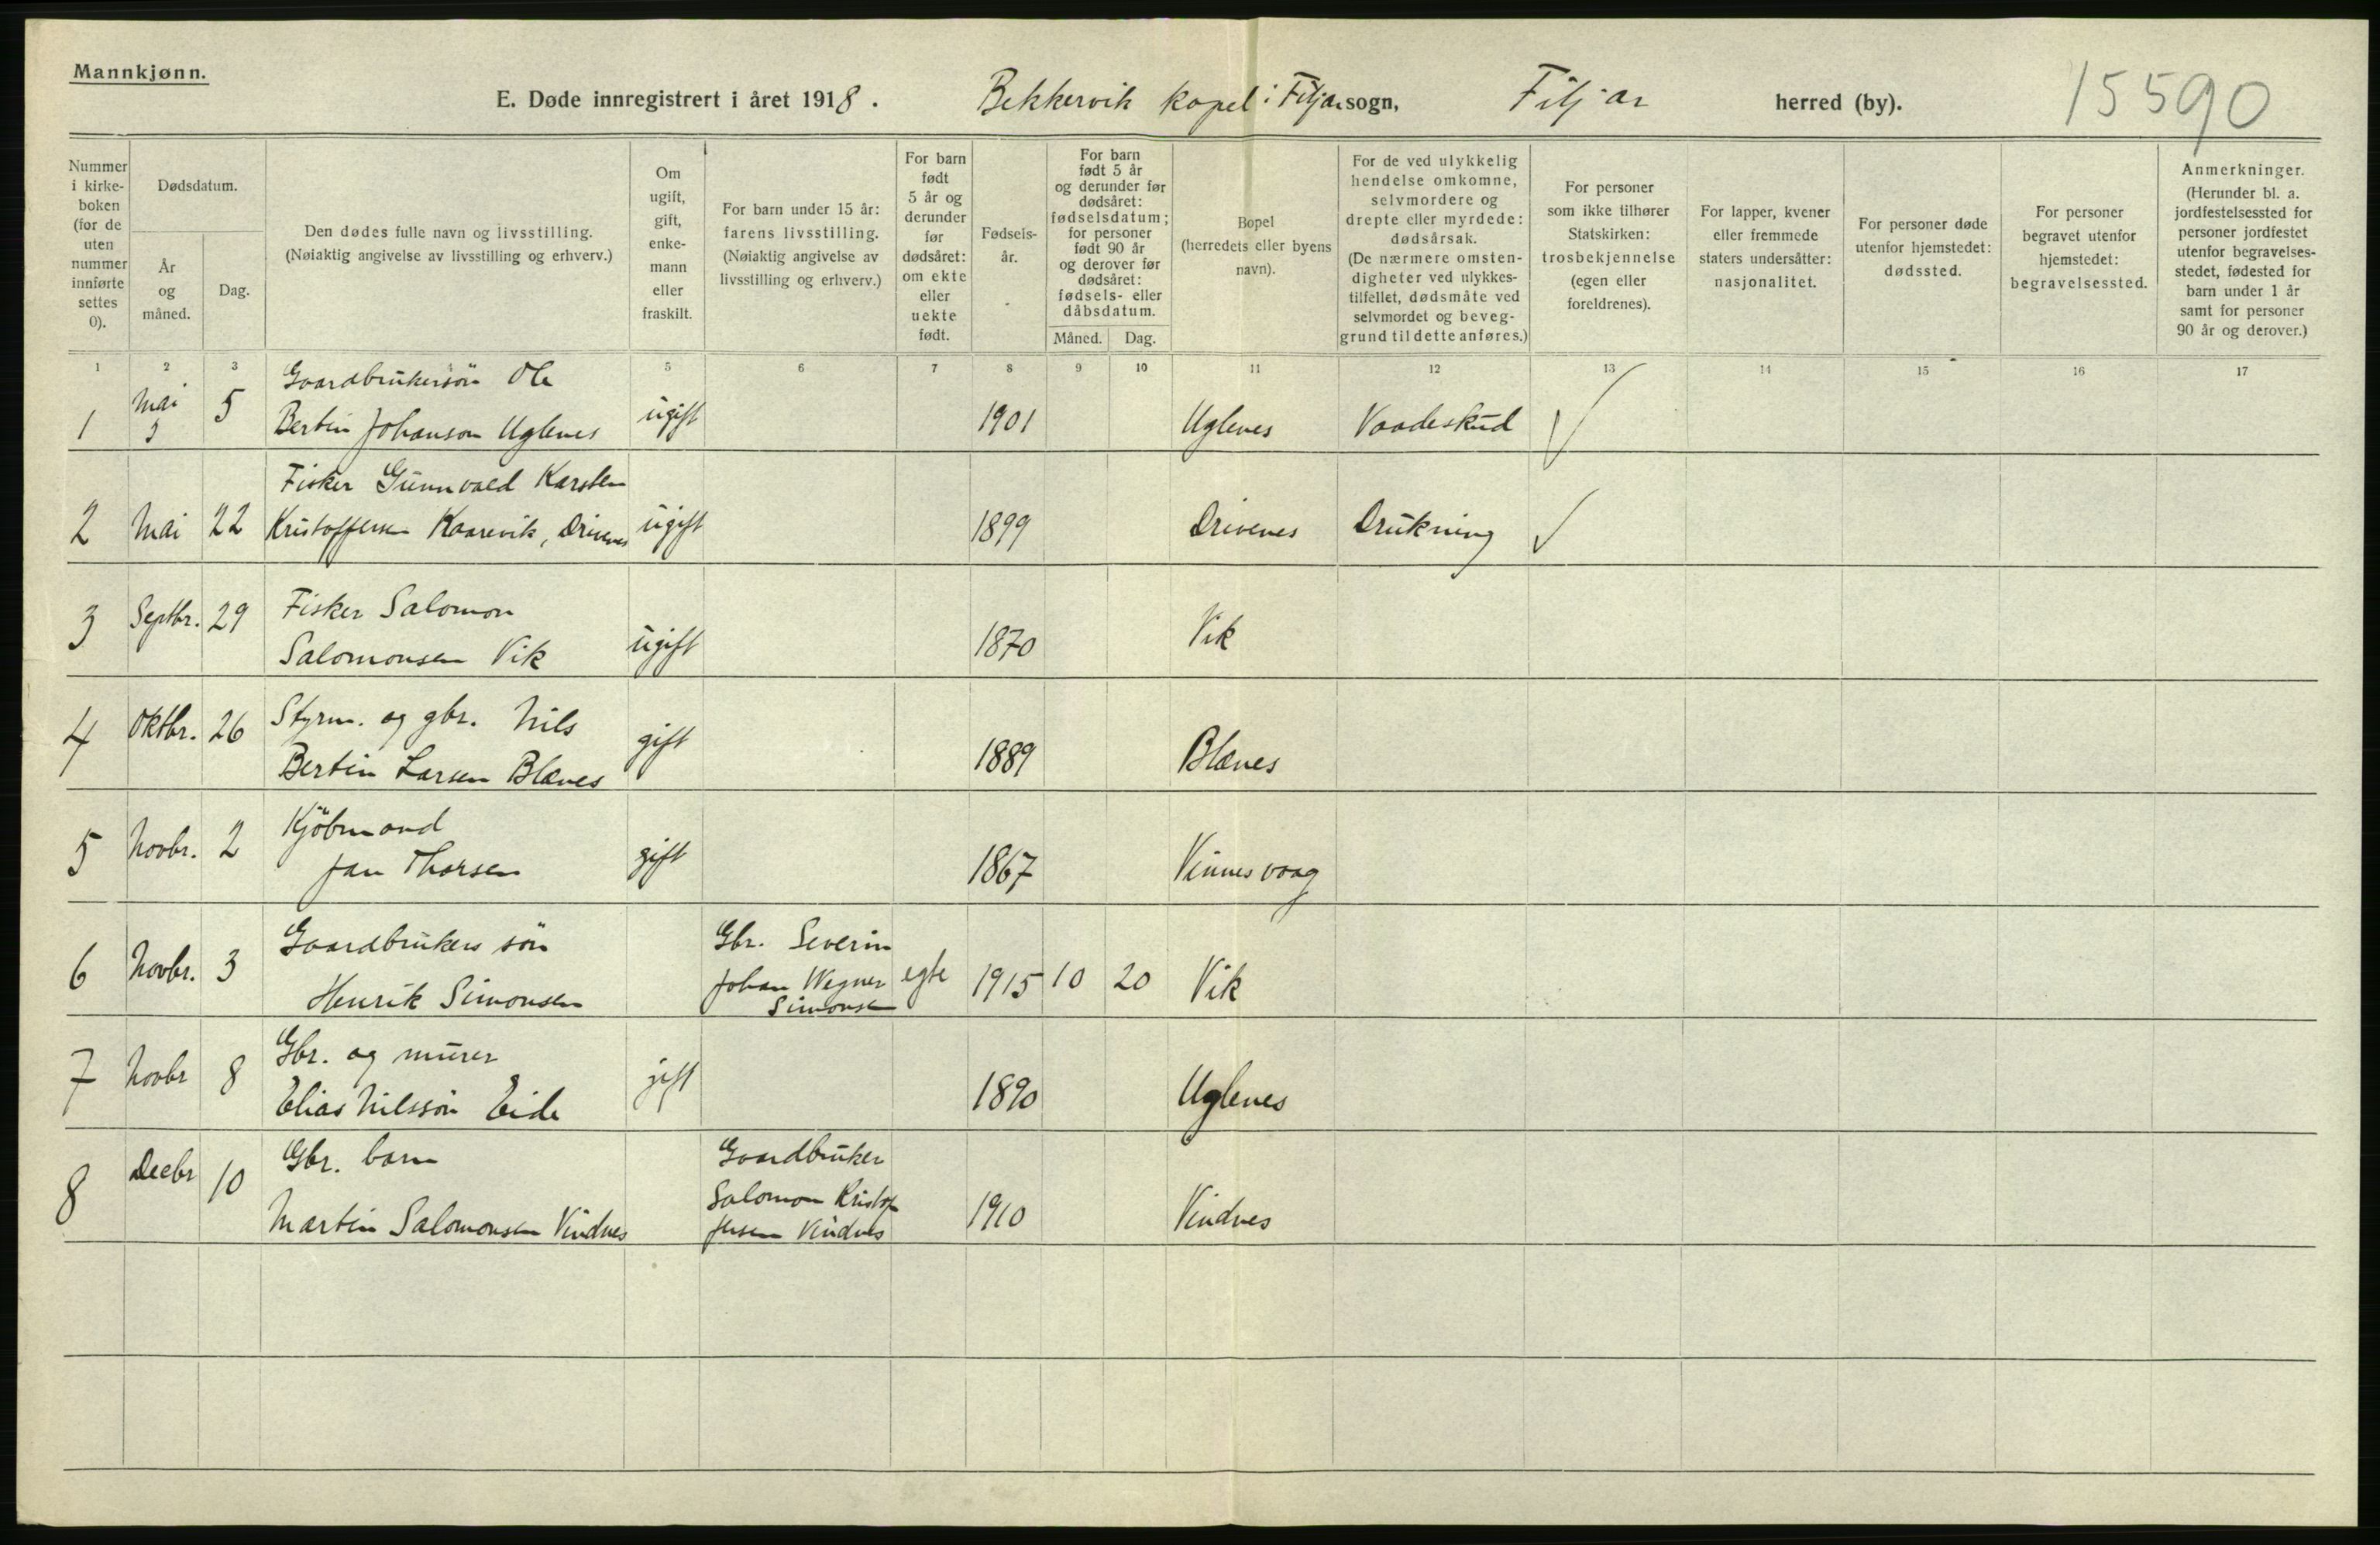 Mannkjønn.
E. Døde innregistrert i året 1918. Bekkervik kapel i Fitjar sogn, Fitjar herred (by). 15590
Nummer i kirkeboken (for de uten nummer innførte settes 0).
Dødsdatum.
År og måned.
Dag.
Den dødes fulle navn og livsstilling.
(Nøiaktig angivelse av livsstilling og erhverv.)
Om ugift, gift, enkemann eller fraskilt.
For barn under 15 år: farens livsstilling. (Nøiaktig angivelse av livsstilling og erhverv.)
For barn født 5 år og derunder før dødsåret: om ekte eller uekte født.
Fødselsår.
For barn født 5 år og derunder før dødsåret: fødselsdatum; for personer født 90 år og derover før dødsåret: fødsels- eller dåbsdatum.
Måned. Dag.
Bopel (herredets eller byens navn).
For de ved ulykkelig hendelse omkomne, selvmordere og drepte eller myrdede: dødsårsak. (De nærmere omstendigheter ved ulykkestilfellet, dødsmåte ved selvmordet og beveggrund til dette anføres.)
For personer som ikke tilhører Statskirken: trosbekjennelse (egen eller foreldrenes).
For lapper, kvener eller fremmede staters undersåtter: nasjonalitet.
For personer døde utenfor hjemstedet: dødssted.
For personer begravet utenfor hjemstedet: begravelsessted.
Anmerkninger. (Herunder bl. a. jordfestelsessted for personer jordfestet utenfor begravelsesstedet, fødested for barn under 1 år samt for personer 90 år og derover.)
1 2 3 5 6 7 8 9 10 11 12 13 14 15 16 17
1 Mai 5 5 Gaardbrukersön Ole
Bertin Johanson Uglenes ugift 1901 Uglenes Vaadeskud
2 Mai 22 Fisker Gunnvald Karsten
Kristoffersen Kaarevik, Drivenes ugift 1899 Drivenes Drukning
3 Septbr. 29 Fisker Salomon
Salomonsen Vik ugift 1870 Vik
4 Oktbr. 26 Styrm. og gbr. Nils
Bertin Larsen Blænes gift 1889 Blænes
5 Novbr. 2 Kjöbmand
Jan Thorsen gift 1867 Vinnesvaag
6 Novbr. 3 Gaardbrukers sön
Henrik Simonsen Gbr. Severin
Johan Wegner
Simonsen egte 1915 10 20 Vik
7 Novbr 8 Gbr. og murer
Elias Nilssön Eide gift 1890 Uglenes
8 Decbr 10 Gbr. barn
Martin Salomonsen Vindnes Gaardbruker
Salomon Kristof
fersen Vindnes 1910 Vindnes